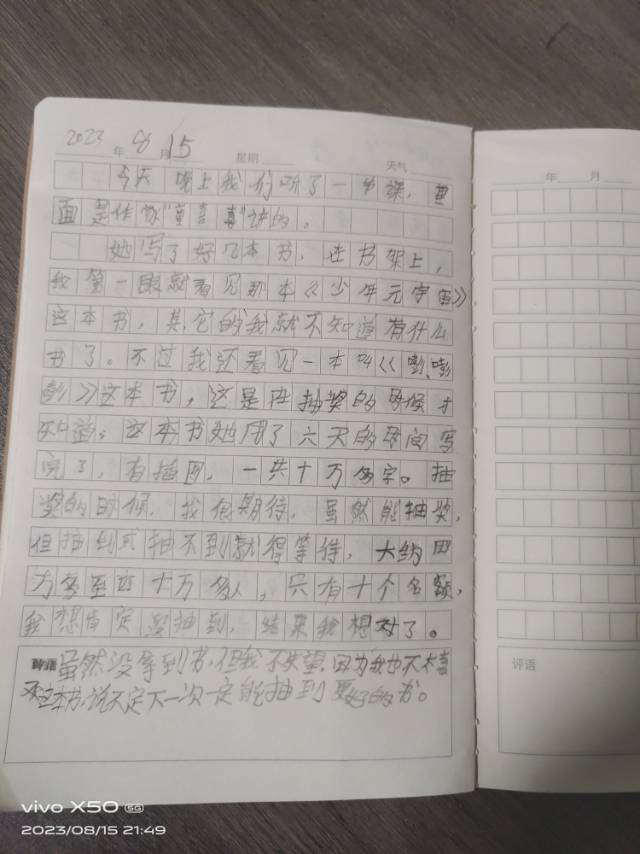 2023年8月15 星期 天气
今天晚上我们听了一节课,里
面是作家"董喜喜"讲的。
她写了好几本书,在书架上,
我第一眼就看见那本《少年元宇宙》
这本书,其它的我就不知道有什么
书了。不过我还看见一本叫《嘭嘭
嘭》这本书,这是在抽奖的时候才
知道,这本书她用了六天的时间写
完了,有插图,一共十万多字。抽
奖的时候,我很期待,虽然能抽奖,
但抽到或抽不到就得等待,大约四
万多至四十万多人,只有十个名额,
我想肯定没抽到,结果我想对了。
评语 虽然没拿到书,但我不失望,因为我也不太喜
这本书,说不定下一次一定能抽到更好的书。
年 月
评语
vivo X50 5G
2023/08/15 21:49